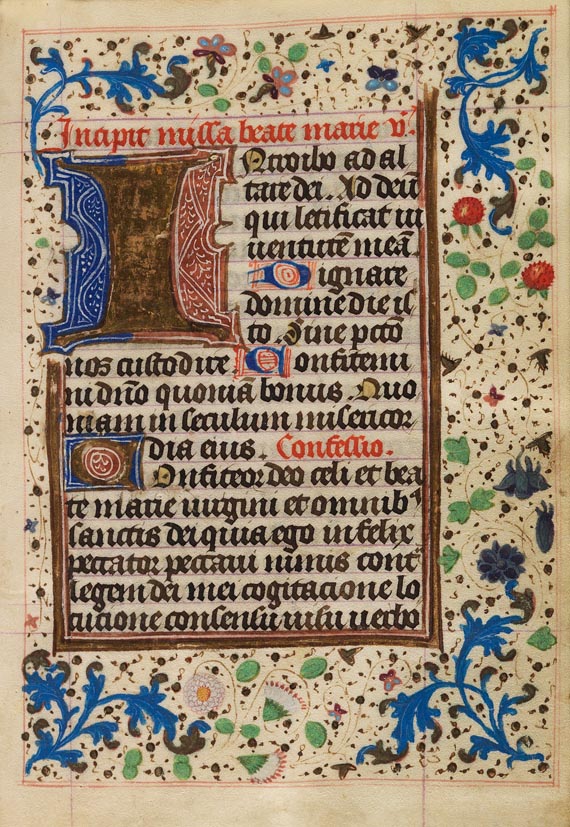 Incipit missa beate marie v̄.
Introibo ad al
tare dei. Ad deū
qui letificat iu
uentutē meā
Dignare
domine die is
to. Sine pctō
nos custodire. Confitemi
ni dn̄o quoniā bonus. Quo
niam in seculum misericor
dia eius. Confessio.
Confiteor deo celi et bea
te marie uirgini et omnibꝰ
sanctis dei quia ego infelix
peccator peccaui nimis cont͛
legem dei mei cogitacione lo
cucione consensu uisu uerbo